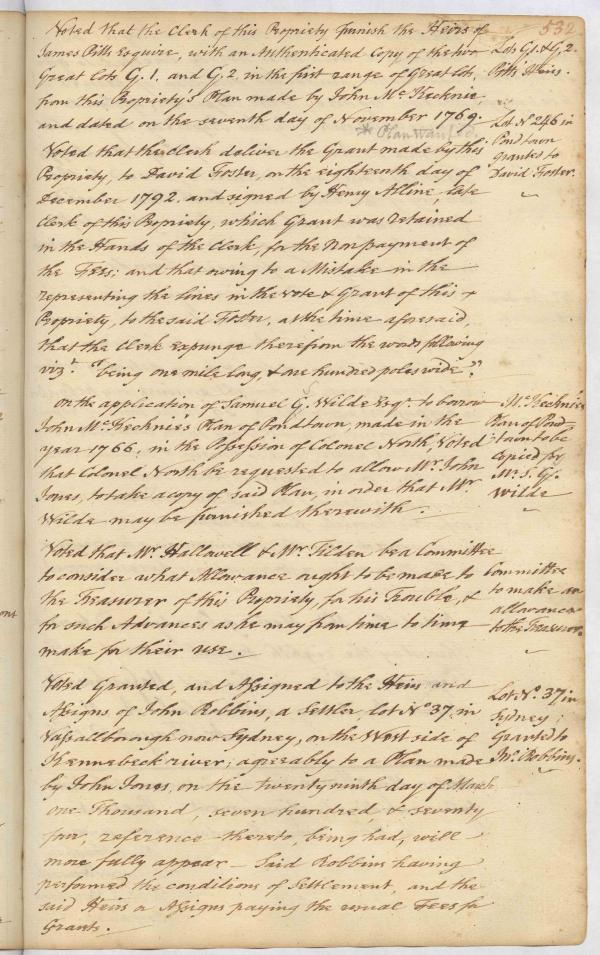 532
Noted that the Clerk of this Propriety furnish the Heirs of
James Pitts Esquire, with an Authenticated Copy of the two
Great Lots G. 1. and G, 2 in the first range of Great Lots,
from this Propriety's Plan made by John Mc. Kecknie,
and dated on the seventh day of November 1769.
* Plan Wanted
Lots G1. & G, 2.
Pitts Heirs.
Noted that the Clerk deliver the Grant made by this
Propriety, to David Foster, on the eighteenth day of
December 1792. and signed by Henry Alline, late
Clerk of this Propriety, which Grant was retained
in the Hands of the Clerk, for the Nonpayment of
the Fees; and that owing to a Mistake in the
representing the lines in the Vote & Grant of this +
Propriety, to the said Foster, at the time aforesaid,
that the Clerk expunge therefrom the words following
vizt. "being one mile long, & one hundred poles wide".
Lot No 246 in
Pond town
granted to
David Foster.
On the application of Samuel G. Wilde Esqr. to borrow
John Mc. Kecknie's Plan of Pondtown, made in the
year 1766, in the Possession of Colonel North, Voted
that Colonel North be requested to allow Mr. John
Jones, to take a copy of said Plan, in order that Mr.
Wilde may be furnished therewith.
Mc. Kecknie's
Plan of Pond
town to be
Copied for
Mr. S. G.
Wilde
Voted that Mr. Hallowell & Mr. Tilden be a Committee
to consider what Allowance ought to be made to
the Treasurer of this Propriety, for his Trouble, &
for such Advances as he may from time to time
make for their use.
Committee
to make an
allowance
to the Treasurer.
Voted Granted, and Assigned to the Heirs and
Assigns of John Robbins, a Settler lot No. 37, in
Vassallborough now Sydney, on the West side of
Kennebeck river; agreeably to a Plan made
by John Jones, on the twenty ninth day of March
one Thousand, seven hundred, & seventy
four, reference thereto, being had, will
more fully appear — Said Robbins having
performed the conditions of Settlement, and the
said Heirs or Assigns paying the usual Fees for
Grants.
Lot No. 37 in
Sydney;
Granted to
Jno. Robbins.